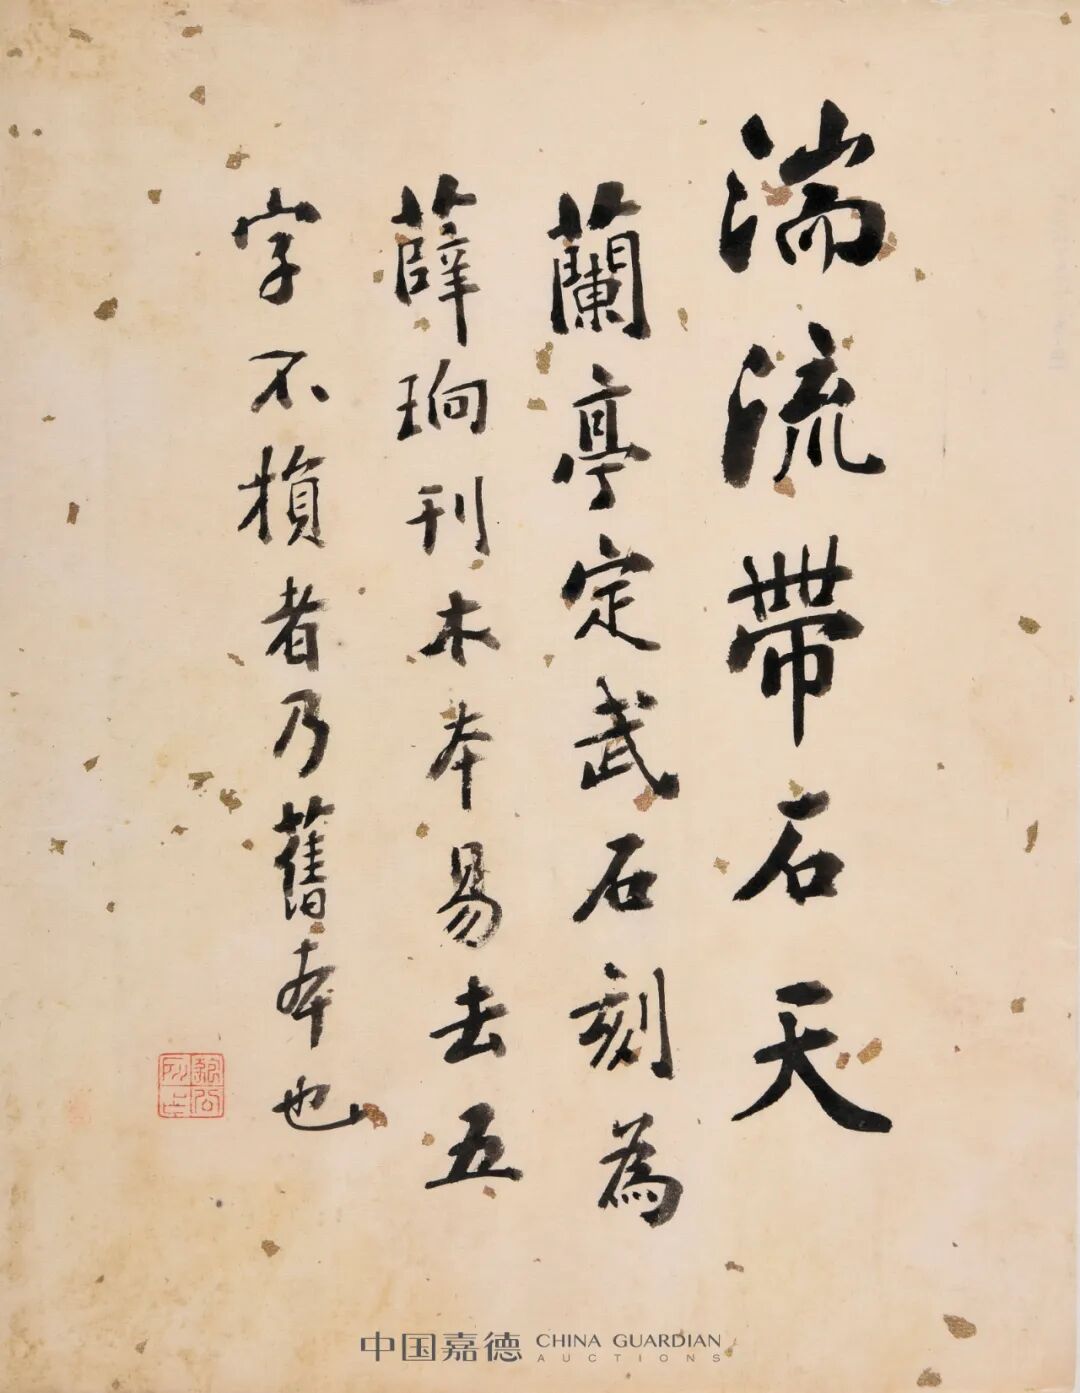 湍流帶石天
蘭亭定武石刻為
薛珣刊木本易去五
字不損者乃舊本也
中国嘉德 CHINA GUARDIAN
AUCTIONS